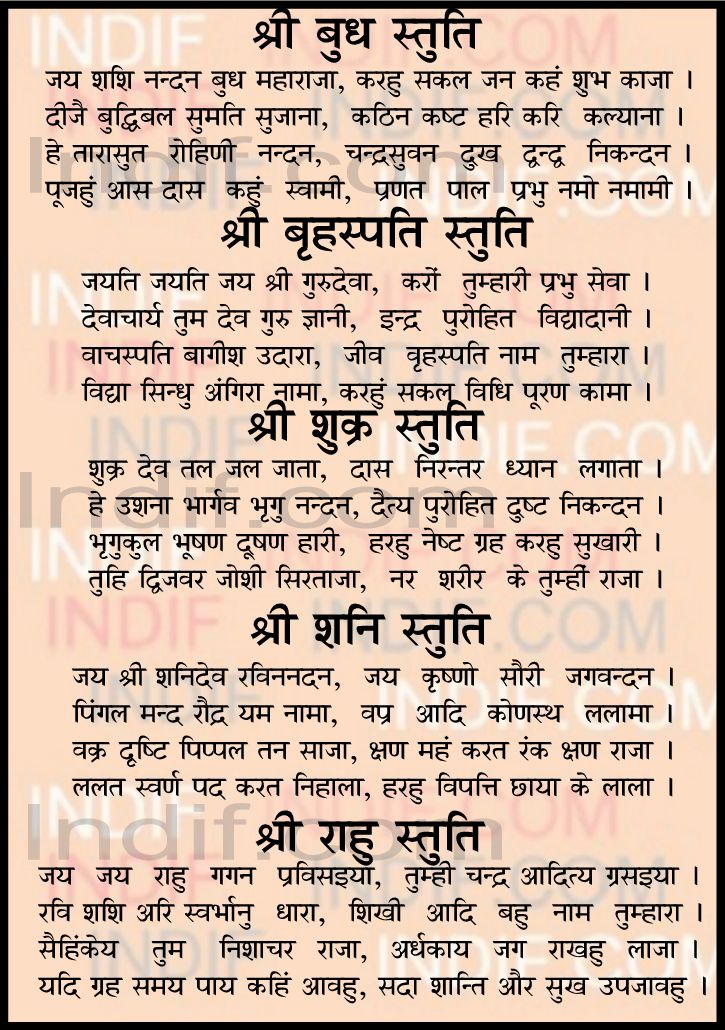 श्री बुध स्तुति
जय शशि नन्दन बुध महाराजा, करहु सकल जन कहं शुभ काजा ।
दीजै बुद्धिबल सुमति सुजाना, कठिन कष्ट हरि करि कल्याना ।
हे तारासुत रोहिणी नन्दन, चन्द्रसुवन दुख द्वन्द्व निकन्दन ।
पूजहुं आस दास कहुं स्वामी, प्रणत पाल प्रभु नमो नमामी ।
श्री बृहस्पति स्तुति
जयति जयति जय श्री गुरुदेवा, करों तुम्हारी प्रभु सेवा ।
देवाचार्य तुम देव गुरु ज्ञानी, इन्द्र पुरोहित विद्यादानी ।
वाचस्पति बागीश उदारा, जीव वृहस्पति नाम तुम्हारा ।
विद्या सिन्धु अंगिरा नामा, करहुं सकल विधि पूरण कामा ।
श्री शुक्र स्तुति
शुक्र देव तल जल जाता, दास निरन्तर ध्यान लगाता ।
हे उशना भार्गव भृगु नन्दन, दैत्य पुरोहित दुष्ट निकन्दन ।
भृगुकुल भूषण दूषण हारी, हरहु नेष्ट ग्रह करहु सुखारी ।
तुहि द्विजवर जोशी सिरताजा, नर शरीर के तुम्हीं राजा ।
श्री शनि स्तुति
जय श्री शनिदेव रविननदन, जय कृष्णो सौरी जगवन्दन ।
पिंगल मन्द रौद्र यम नामा, वप्र आदि कोणस्थ ललामा ।
वक्र दृष्टि पिप्पल तन साजा, क्षण महं करत रंक क्षण राजा ।
ललत स्वर्ण पद करत निहाला, हरहु विपत्ति छाया के लाला ।
श्री राहु स्तुति
जय जय राहु गगन प्रविसइया, तुम्ही चन्द्र आदित्य ग्रसइया ।
रवि शशि अरि स्वर्भानु धारा, शिखी आदि बहु नाम तुम्हारा ।
सैहिंकेय तुम निशाचर राजा, अर्धकाय जग राखहु लाजा ।
यदि ग्रह समय पाय कहिं आवहु, सदा शान्ति और सुख उपजावहु ।